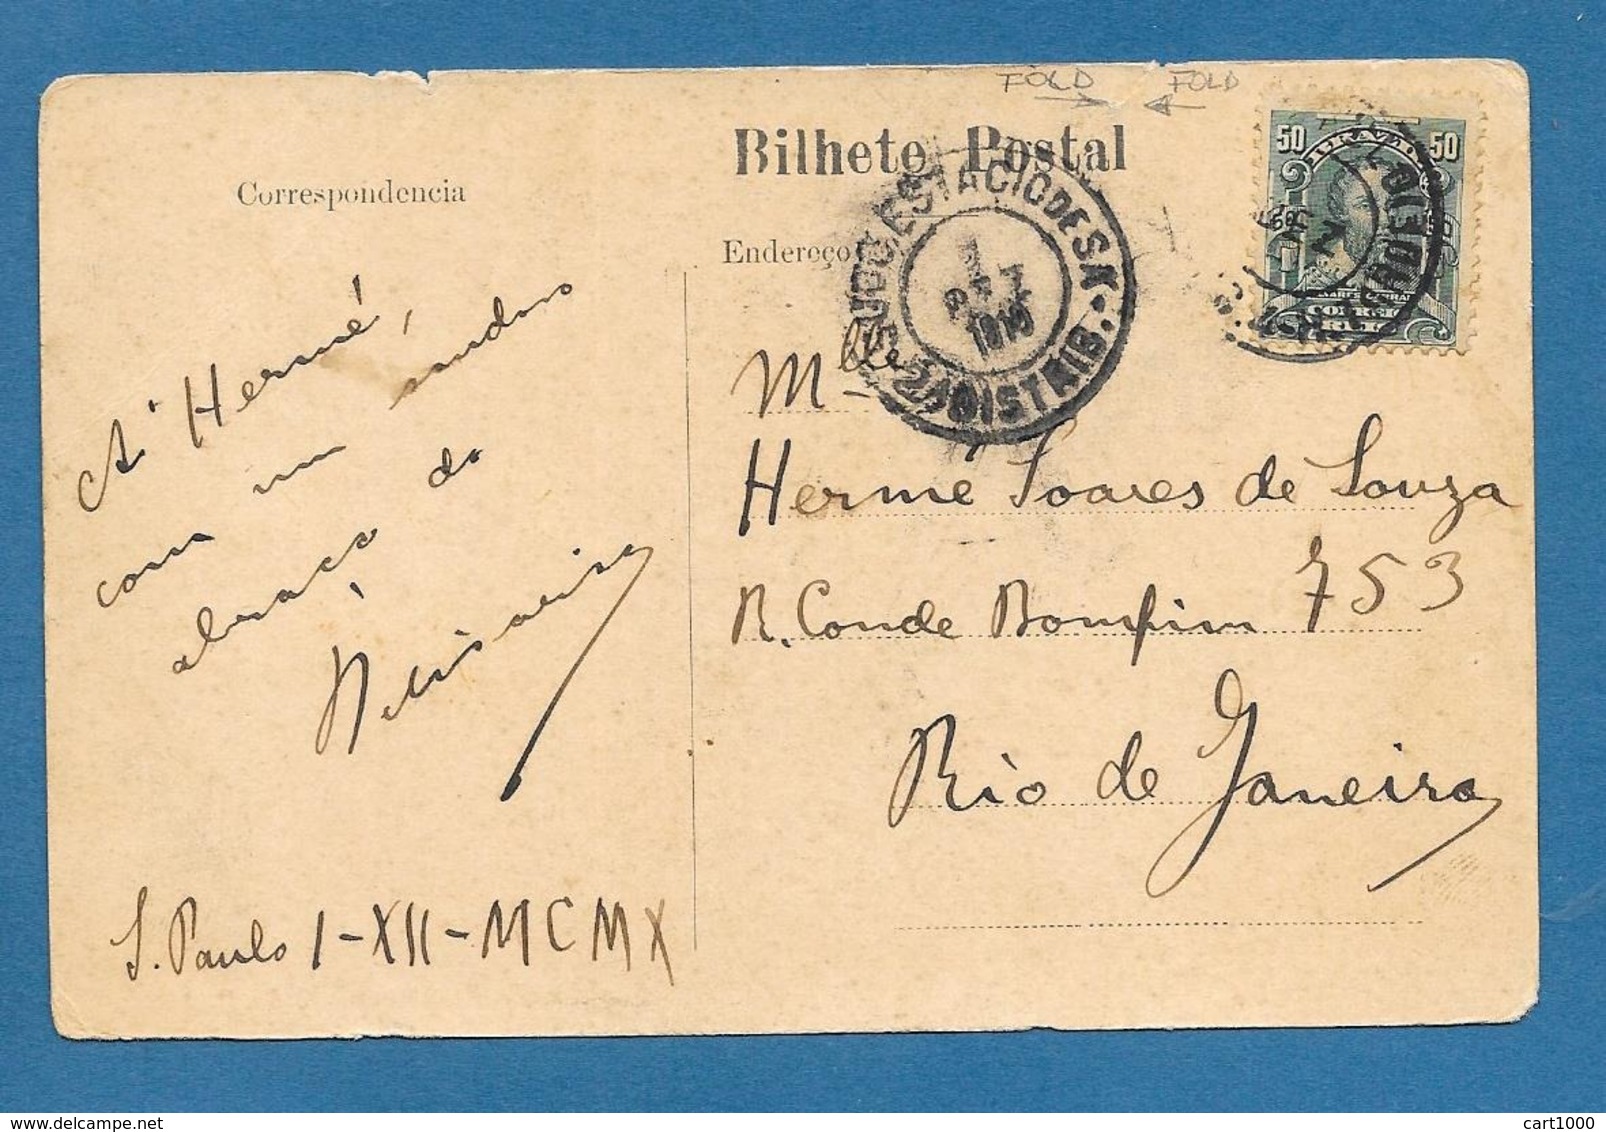 FOLD FOLD
Bilhete Postal
Correspondencia
Endereço
50 50
SUCC. ESTACIO DE SÁ
2ª DISTRIB.
1910
CORREIO
A' Hermé,
com um
abraço do
S. Paulo 1-XII-MCMX
Mlle
Hermé Soares de Souza
R. Conde Bomfim 753
Rio de Janeiro
cart1000